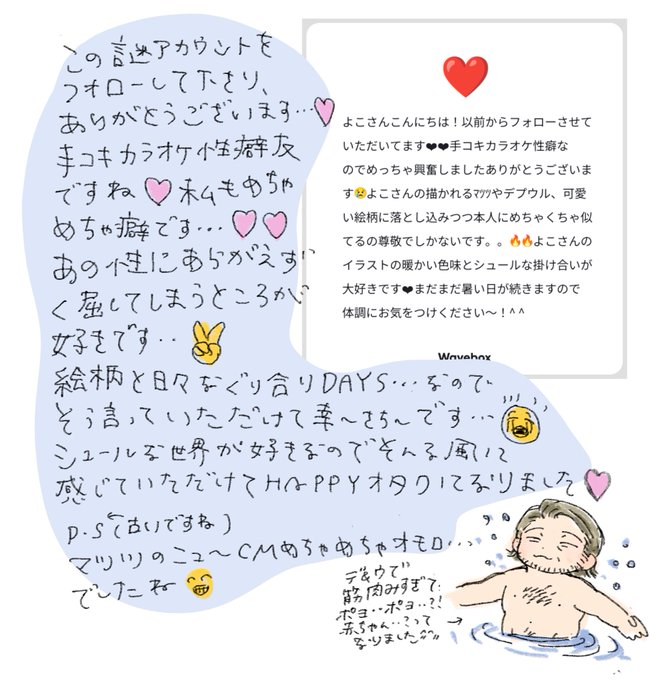 この謎アカウントを
フォローして下さり、
ありがとうございます…💗
手コキカラオケ性癖友
ですね💗私もめちゃ
めちゃ癖です…💗💗
あの性にあらがえず
く屈してしまうところが
好きです‥✌
絵柄と日々なぐり合りDAYS…なので
そう言っていただけて幸〜きち〜です…😭
シュールな世界が好きなのでそんな風に
感じていただけてHAPPYオタクになりました💗
P.S(←古いですね)
マッツのニュ〜CMめちゃめちゃオモロ…
でしたね😁
❤️
よこさんこんにちは！以前からフォローさせて
いただいてます❤❤手コキカラオケ性癖な
のでめっちゃ興奮しましたありがとうございま
す😢よこさんの描かれるﾏｯﾂやデプウル、可愛
い絵柄に落とし込みつつ本人にめちゃくちゃ似
てるの尊敬でしかないです。。🔥🔥よこさんの
イラストの暖かい色味とシュールな掛け合いが
大好きです❤まだまだ暑い日が続きますので
体調にお気をつけください〜！^ ^
Wavebox
デ&ウで
筋肉みすぎて
ポヨ‥ポヨ‥?!
赤ちゃん‥?って
なりました